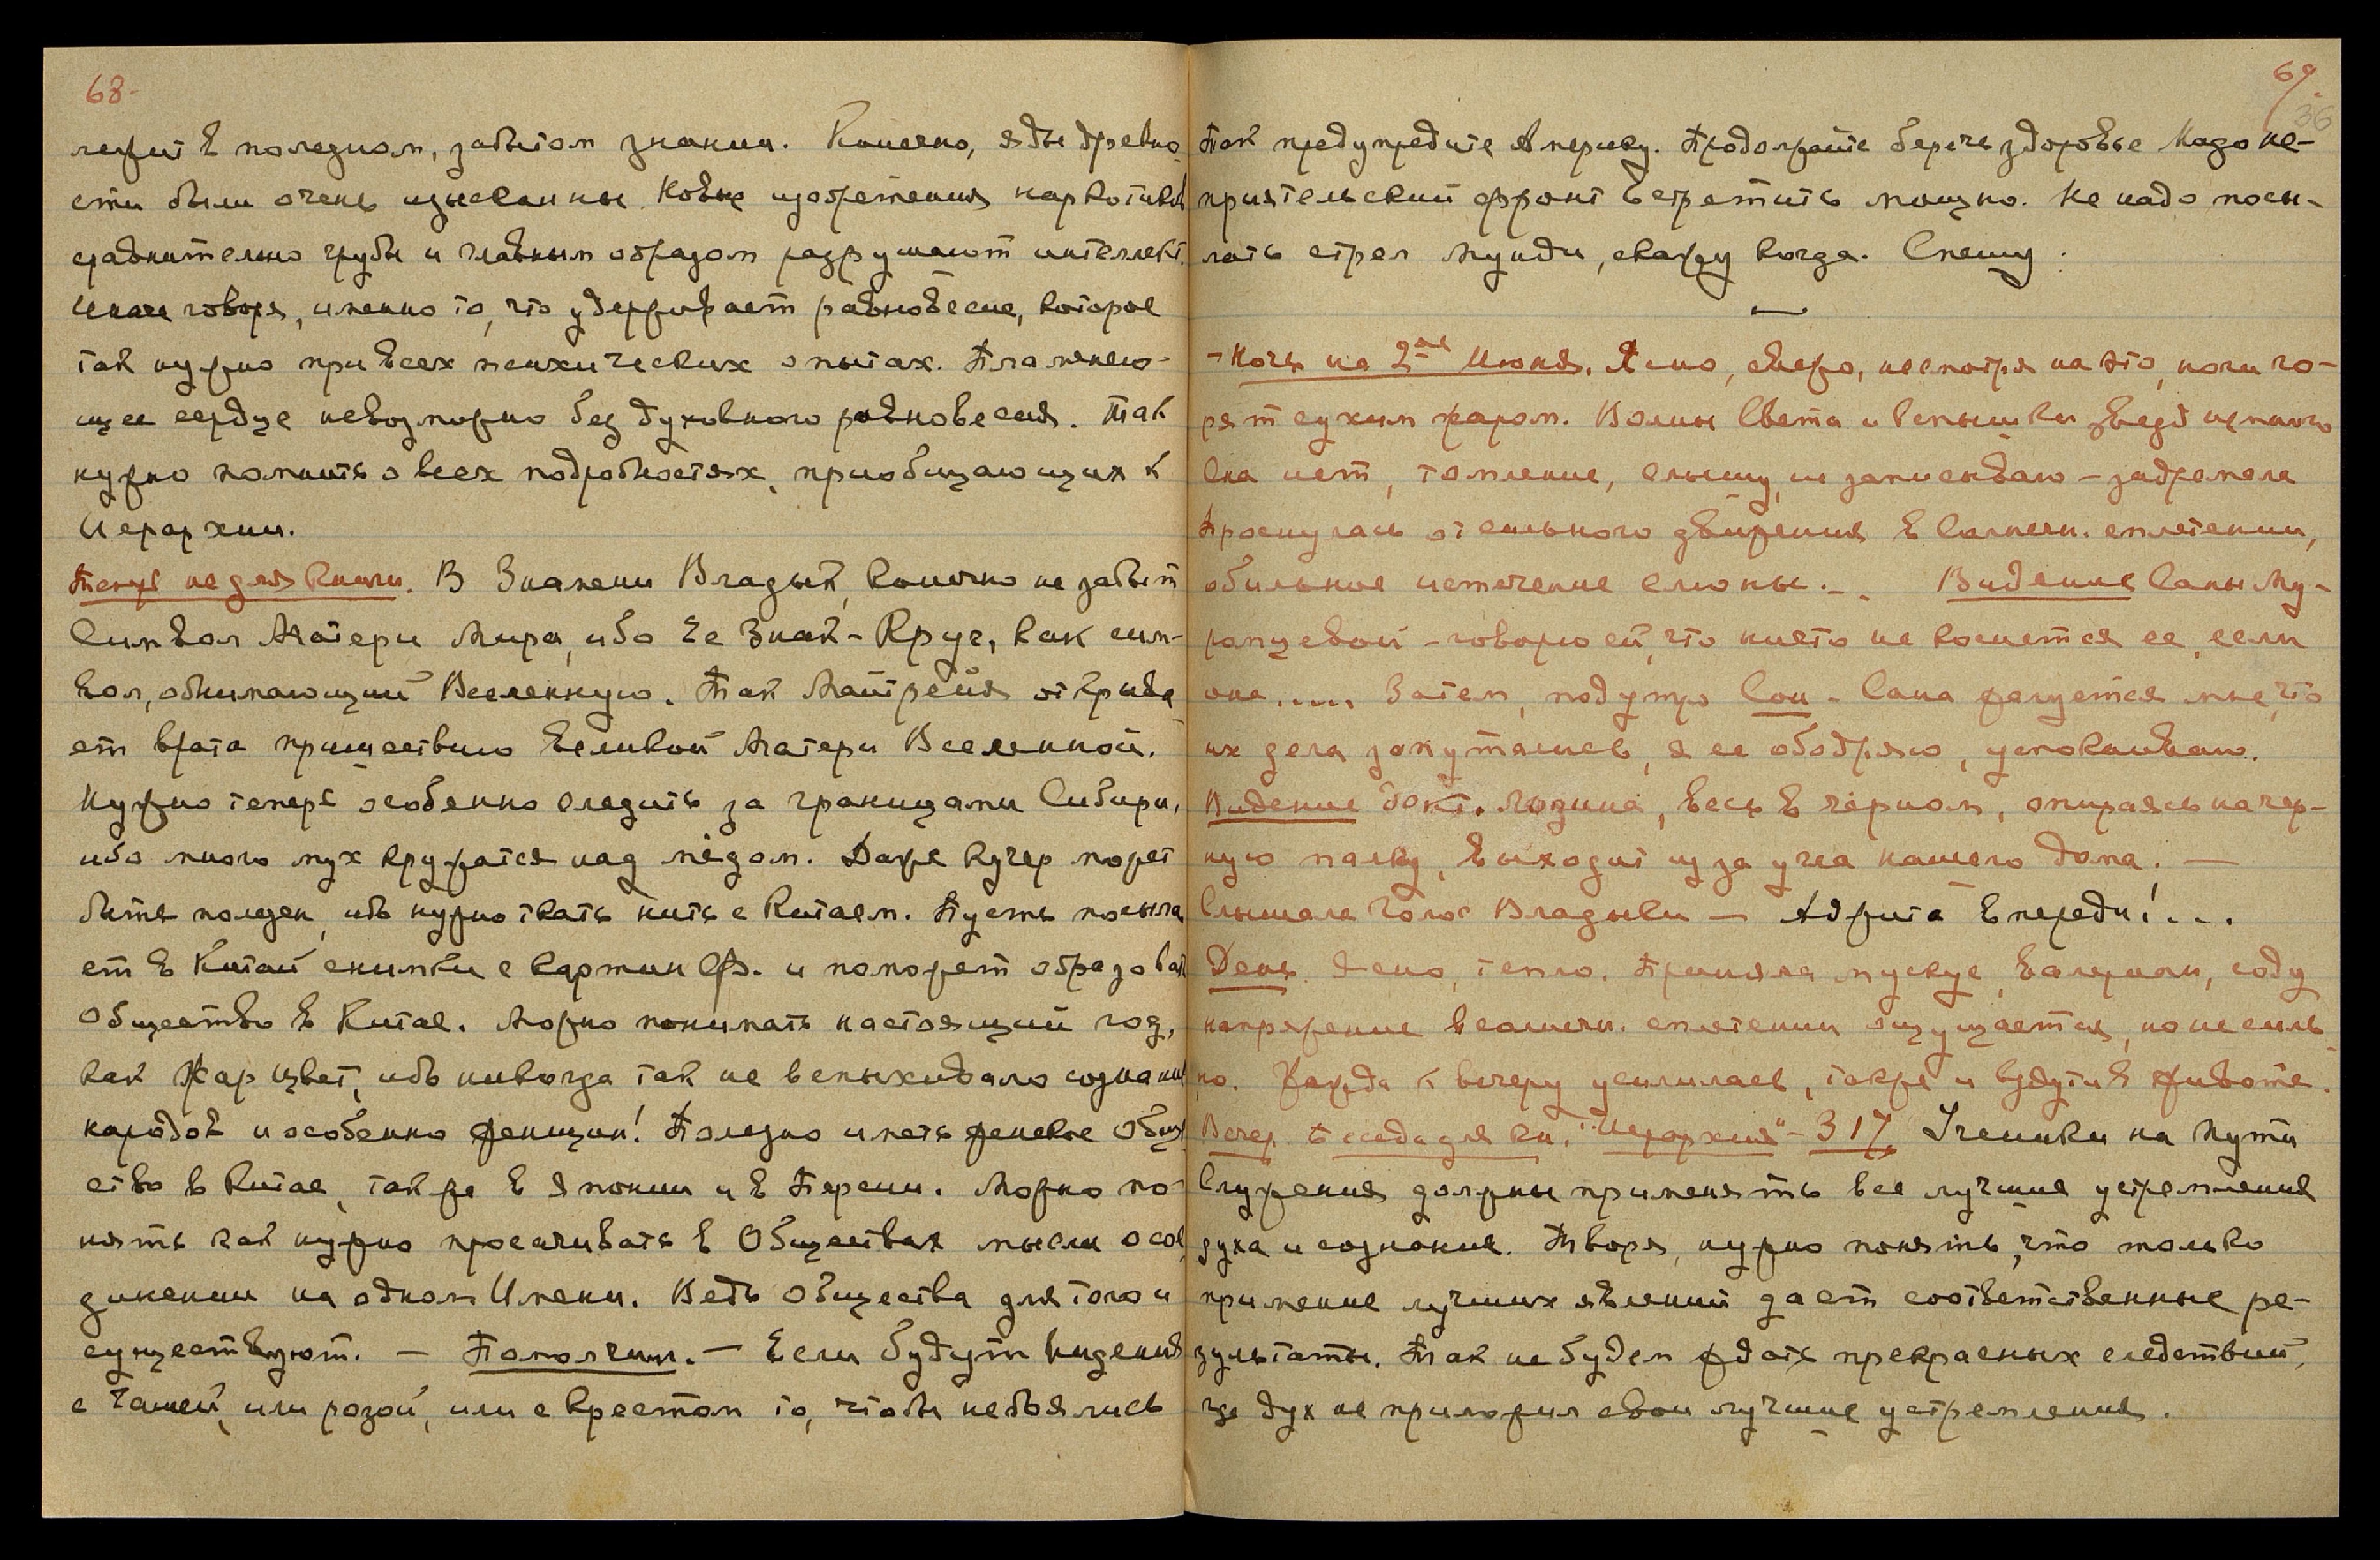 68.
лежит в полезном, забытом знании. Конечно, яды древно
сти были очень изысканны. Новые изобретения наркотиков
сравнительно грубы и главным образом разрушают интеллект.
Иначе говоря, именно то, что удерживает равновесие, которое
так нужно при всех психических опытах. Пламенею-
щее сердце невозможно без духовного равновесия. Так
нужно помнить о всех подробностях, приобщающих к
Иерархии.
Теперь не для книги. В Знамени Владык, конечно не забыт
Символ Матери Мира, ибо Ее Знак - Круг, как сим-
вол, обнимающий Вселенную. Так Майтрейя открыва
ет врата пришествию Великой Матери Вселенной.
Нужно теперь особенно следить за границами Сибири,
ибо много мух кружатся над мёдом. Даже кучер может
быть полезен, ибо нужно ткать нить с Китаем. Пусть посыла
ет в Китай снимки с картин Ф. и поможет образовать
Общество в Китае. Можно понимать настоящий год,
как Жар Цвет, ибо никогда так не вспыхивало сознание
народов и особенно женщин! Полезно иметь женское Общ
ство в Китае, также в Японии и в Персии. Можно по-
нять как нужно просачивать в Обществах мысли о сое
динении на одном Имени. Ведь Общества для того и
существуют. — Помолчим. — Если будут видения
с Чашей, или розой, или с Крестом то, чтобы не боялись
69.
36
Так предупредите Америку. Продолжайте беречь здоровье. Надо не-
приятельский фронт встретить мощно. Не надо посы-
лать стрел Мунди, скажу когда. Спешу.
—
- Ночь на 2-ое Июня. Ясно, свежо, несмотря на это, ноги го-
рят сухим жаром. Волны Света и вспышки звезд немного
Сна нет, томление, слышу, не записываю - задремала
Проснулась от сильного движения в Солнечн. сплетении,
обильное истечение слюны. . . Видение Саны Му-
ромцевой - говорю ей, что никто не коснется ее, если
она..... Затем, под утро Сон - Сана жалуется мне, что
их дела запутались, я ее ободряю, успокаиваю.
Видение докт. Лозина, весь в чёрном, опираясь на чер-
ную палку, выходит из за угла нашего дома. —
Слышала Голос Владыки — Аджита Впереди!...
День. Ясно, тепло. Приняла мускус, валериан, соду
напряжение в солнечн. сплетении ощущается, но не силь
но. Жажда к вечеру усилилась, также и вздутие в животе.
Вечер. Беседа для кн. "Иерархия" - 317. Ученики на Пути
Служения должны применять все лучшие устремления
духа и сознания. Творя, нужно понять, что только
применение лучших явлений дает соответственные ре-
зультаты. Так не будем ждать прекрасных следствий,
где дух не приложил свои лучшие устремления.